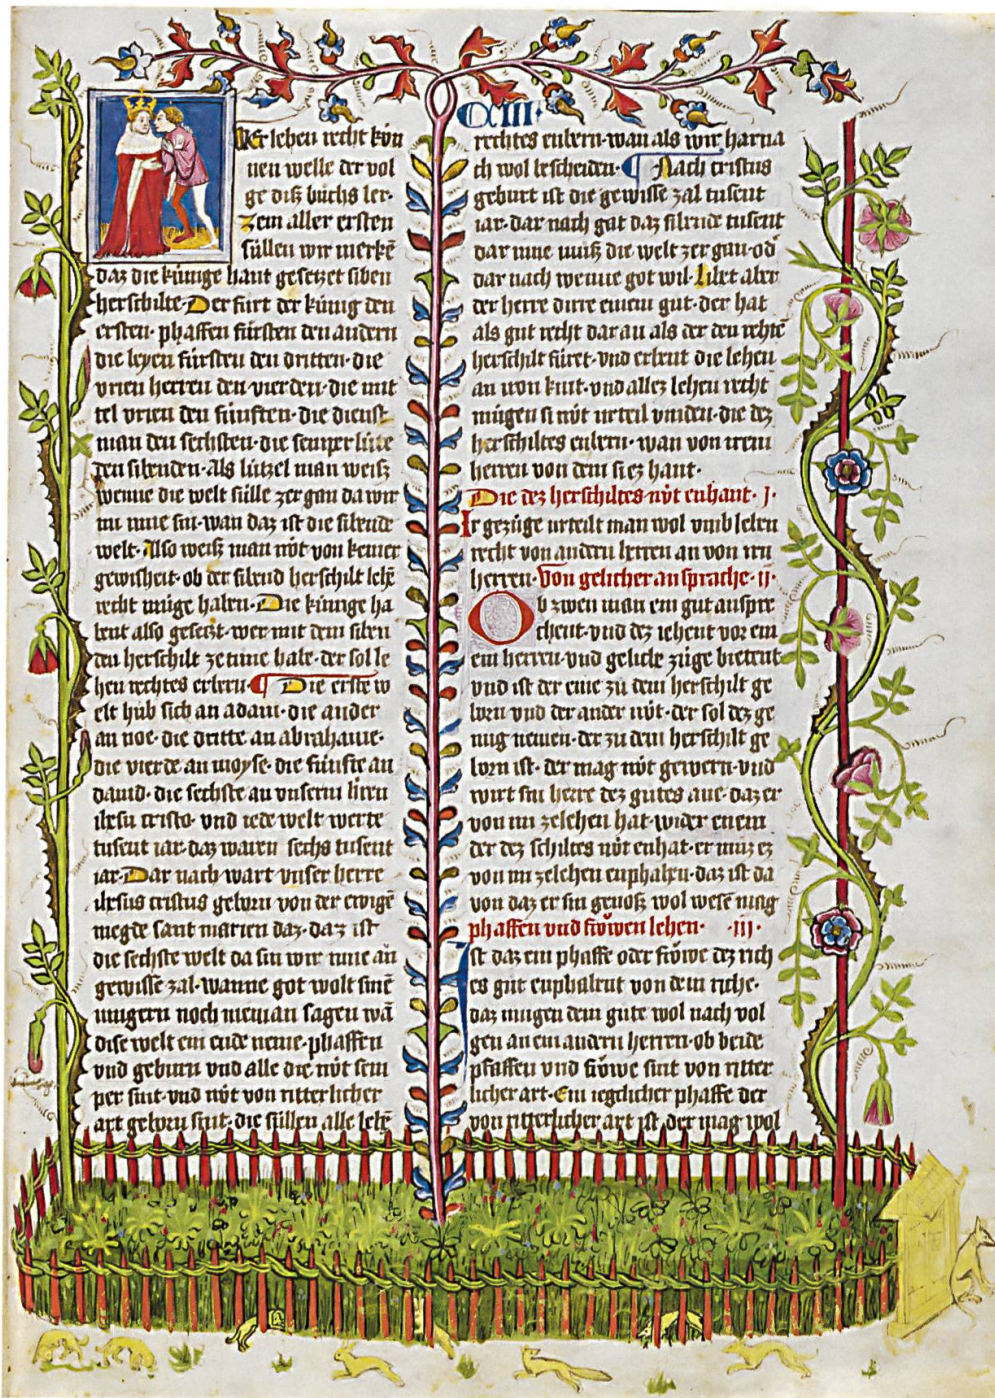 CXIII·
Wer lehen recht kön
nen welle der vol
ge diz büchs ler·
Zem aller ersten
süllen wir merkē
daz die künige hant gesetzet siben
herschilte· Der fürt der künig den
ersten· phaffen fürsten den andern
die leyen fürsten den dritten· die
vrien herren den vierden· die mit
tel vrien den fünften· die dienst
man den sechsten· die semper lüte
den sibenden· als lützel man weisz
wenne die welt sülle zer gan da wir
inne nune sin· wan daz ist die sibende
welt· Also weisz man nöt von keiner
gewisheit· ob der sibend herschilt lehē
recht müge haben· Die künige ha
bent also gesetzt· wer mit dem siben
den herschilt ze tune habe· der sol le
hen rechtes erbern· Die erste w
elt hüb sich an adam· die ander
an noe· die dritte an abrahame·
die vierde an moyse· die fünfte an
dauid· die sechste an vnserm hren
ihesu cristo· vnd iede welt werte
tusent iar· daz waren sechs tusent
iar· Dar nach wart vnser herre
ihesus cristus geborn von der ewigē
megde sant marien daz· daz ist
die sechste welt da sin wir nune an
gewisse zal· wanne got wolt sinē
iungern noch nieman sagen wā
dise welt ein ende neme· phaffen
vnd geburn vnd alle die nöt sem
per sint· vnd nöt von ritterlicher
art geborn sint· die süllen alle lehē
rechtes enbern· wan als wir harna
ch wol bescheiden· Nach cristus
geburt ist die gewisse zal tusent
iar· dar nach gat daz sibende tusent
dar inne muisz die welt zer gan· od
dar nach wenne got wil· Lihet aber
der herre dirre einem gut· der hat
als gut recht dar an als der den rehtē
herschilt füret· vnd erbent die lehen
an iron kint· vnd allez lehen recht
mügen si nöt urteil vinden· die dez
herschiltes enbern· wan von irem
herren von dem si ez hant·
Die dez herschiltes nöt enhant· I·
Ir gezüge urteilt man wol vmb lehen
recht von andern herren an von irn
herren· Von gelicher an sprache· II·
Ob zwen man ein gut anspre
chent· vnd dez iehent vor ein
ein herren· vnd geliche züge bietent
vnd ist der eine zu dem herschilt ge
born vnd der ander nöt· der sol dez ge
nüg nemen· der zu dem herschilt ge
born ist· der mag nöt gewern· vnd
wirt sin herre dez gutes ane· daz er
von im zelehen hat· wider einem
der dez schiltes nöt enhat· er müz ez
von im zelehen enphahen· daz ist da
von daz er sin genosz wol wesē mag
phaffen vnd fröwen lehen· ·III·
Ist daz ein phaffe oder fröwe dez rich
es güt enphahent von dem riche·
daz mugen dem gute wol nach vol
gen an ein andern herren· ob beide
pfaffen vnd fröwe sint von ritter
licher art· Ein iegelicher phaffe der
von ritterlicher art ist· der mag wol